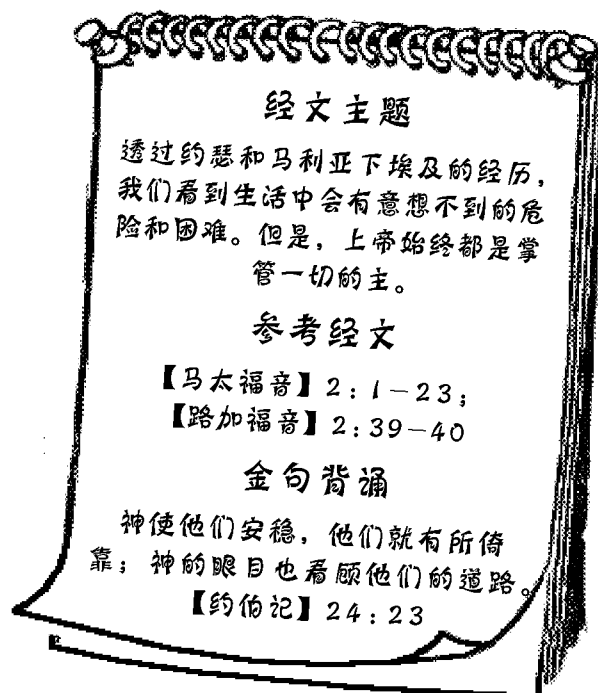 经文主题
透过约瑟和马利亚下埃及的经历，
我们看到生活中会有意想不到的危
险和困难。但是，上帝始终都是掌
管一切的主。
参考经文
【马太福音】2：1－23；
【路加福音】2：39－40
金句背诵
神使他们安稳，他们就有所倚
靠；神的眼目也看顾他们的道路。
【约伯记】24：23